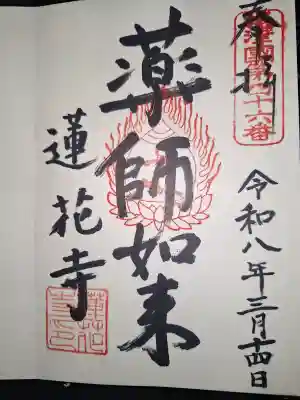 奉拝
令和八年三月十四日
薬師如来
蓮花寺
蓮花寺印